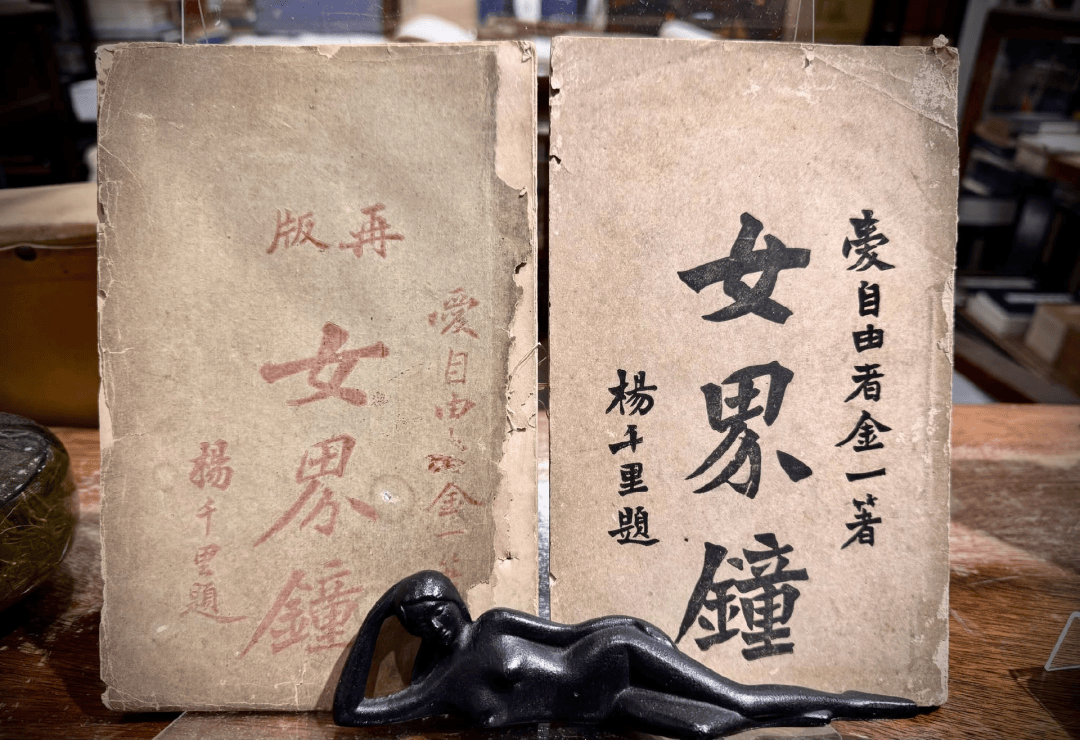 再版
愛自由 金一
女界鐘
楊千里題
愛自由者金一箸
女界鐘
楊千里題